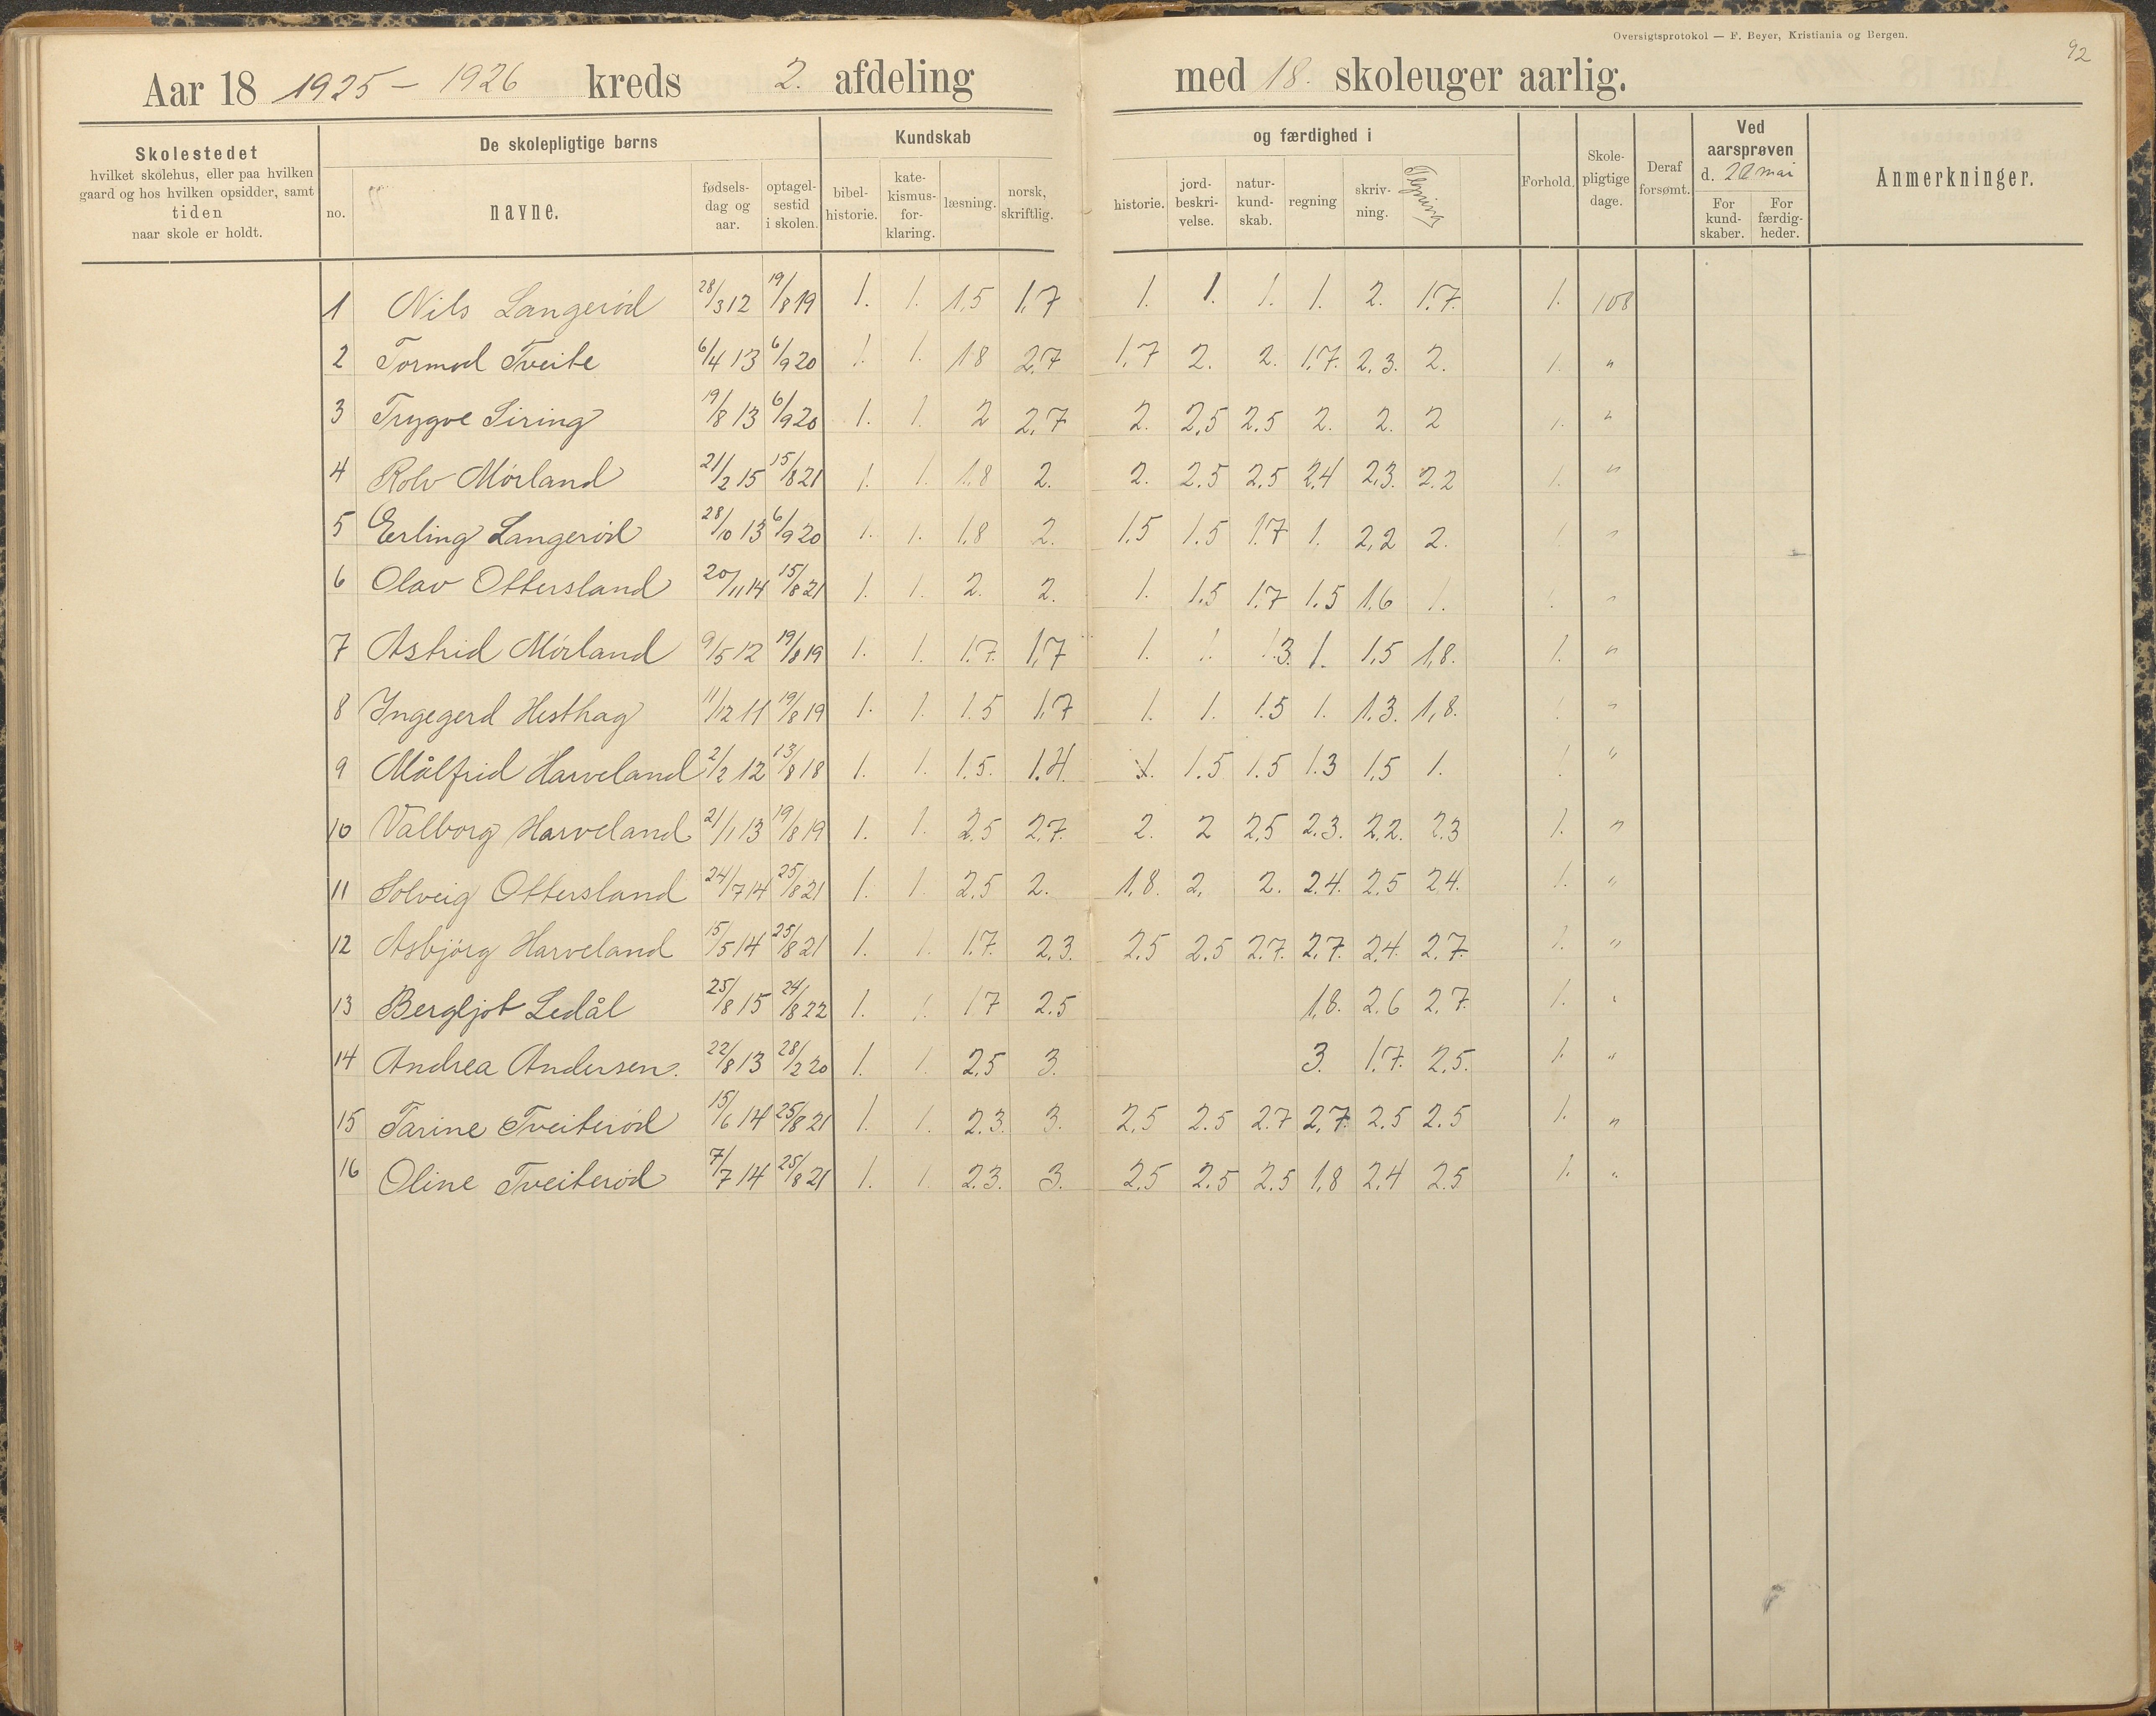 Oversigtsprotokol — F. Beyer, Kristiania og Bergen.
92
Aar 18 1925 – 1926 kreds 2. afdeling med 18. skoleuger aarlig.
Skolestedet
hvilket skolehus, eller paa hvilken
gaard og hos hvilken opsidder, samt
tiden
naar skole er holdt.
De skolepligtige børns
no.
navne.
fødsels-
dag og
aar.
optagel-
sestid
i skolen.
Kundskab
bibel-
historie.
kate-
kismus-
for-
klaring.
læsning.
norsk,
skriftlig.
og færdighed i
historie.
jord-
beskri-
velse.
natur-
kund-
skab.
regning
skriv-
ning.
Tegning
Forhold.
Skole-
pligtige
dage.
Deraf
forsømt.
Ved
aarsprøven
d. 22 mai
For
kund-
skaber.
For
færdig-
heder.
Anmerkninger.
1 Nils Langerød 28/3 12 19/8 19 1. 1. 1,5 1,7 1. 1. 1. 1. 2. 1.7. 1. 108
2 Tormod Tveite 6/4 13 6/9 20 1. 1. 1.8 2,7 1,7 2. 2. 1.7. 2.3. 2. 1. "
3 Trygve Liring 19/8 13 6/9 20 1. 1. 2 2,7 2. 2,5 2.5 2. 2. 2 1. "
4 Rolv Mörland 21/2 15 15/8 21 1. 1. 1,8 2. 2. 2.5 2.5 2.4 2.3. 2.2 1. "
5 Erling Langerød 28/10 13 6/9 20 1. 1. 1.8 2. 1.5 1.5 1.7 1. 2,2 2. 1. "
6 Olav Ottersland 20/11 14 15/8 21 1. 1. 2. 2. 1. 1.5 1.7 1.5 1,6 1. 1. "
7 Astrid Mörland 9/5 12 19/8 19 1. 1. 1.7. 1,7 1. 1. 1.3. 1. 1.5 1,8. 1. "
8 Ingegerd Hesthag 11/12 11 19/8 19 1. 1. 1.5 1.7 1. 1. 1.5 1. 1.3. 1,8. 1. "
9 Målfrid Harveland 2/2 12 13/8 18 1. 1. 1.5. 1.4. 1. 1.5 1.5 1.3 1.5 1. 1. "
10 Valborg Harveland 21/1 13 19/8 19 1. 1. 2.5 2.7. 2. 2 2.5 2.3. 2.2. 2.3 1. "
11 Solveig Ottersland 24/7 14 25/8 21 1. 1. 2.5 2. 1,8. 2. 2. 2.4. 2.5 2.4. 1. "
12 Asbjörg Harveland 15/5 14 25/8 21 1. 1. 1.7. 2.3. 2.5 2.5 2.7. 2.7. 2.4. 2.7. 1. "
13 Bergljot Ledål 25/8 15 24/8 22 1. 1. 1.7 2.5 1,8. 2.6 2.7. 1. "
14 Andrea Andersen. 22/8 13 28/2 20 1. 1. 2.5 3. 3. 1.7. 2.5. 1. "
15 Tarine Tveiterød 15/6 14 25/8 21 1. 1. 2.3. 3. 2.5 2.5 2.7 2,7. 2.5 2.5 1. "
16 Oline Tveiterød 7/7 14 25/8 21 1. 1. 2.3. 3. 2.5 2.5 2.5 1,8 2.4 2.5 1. "